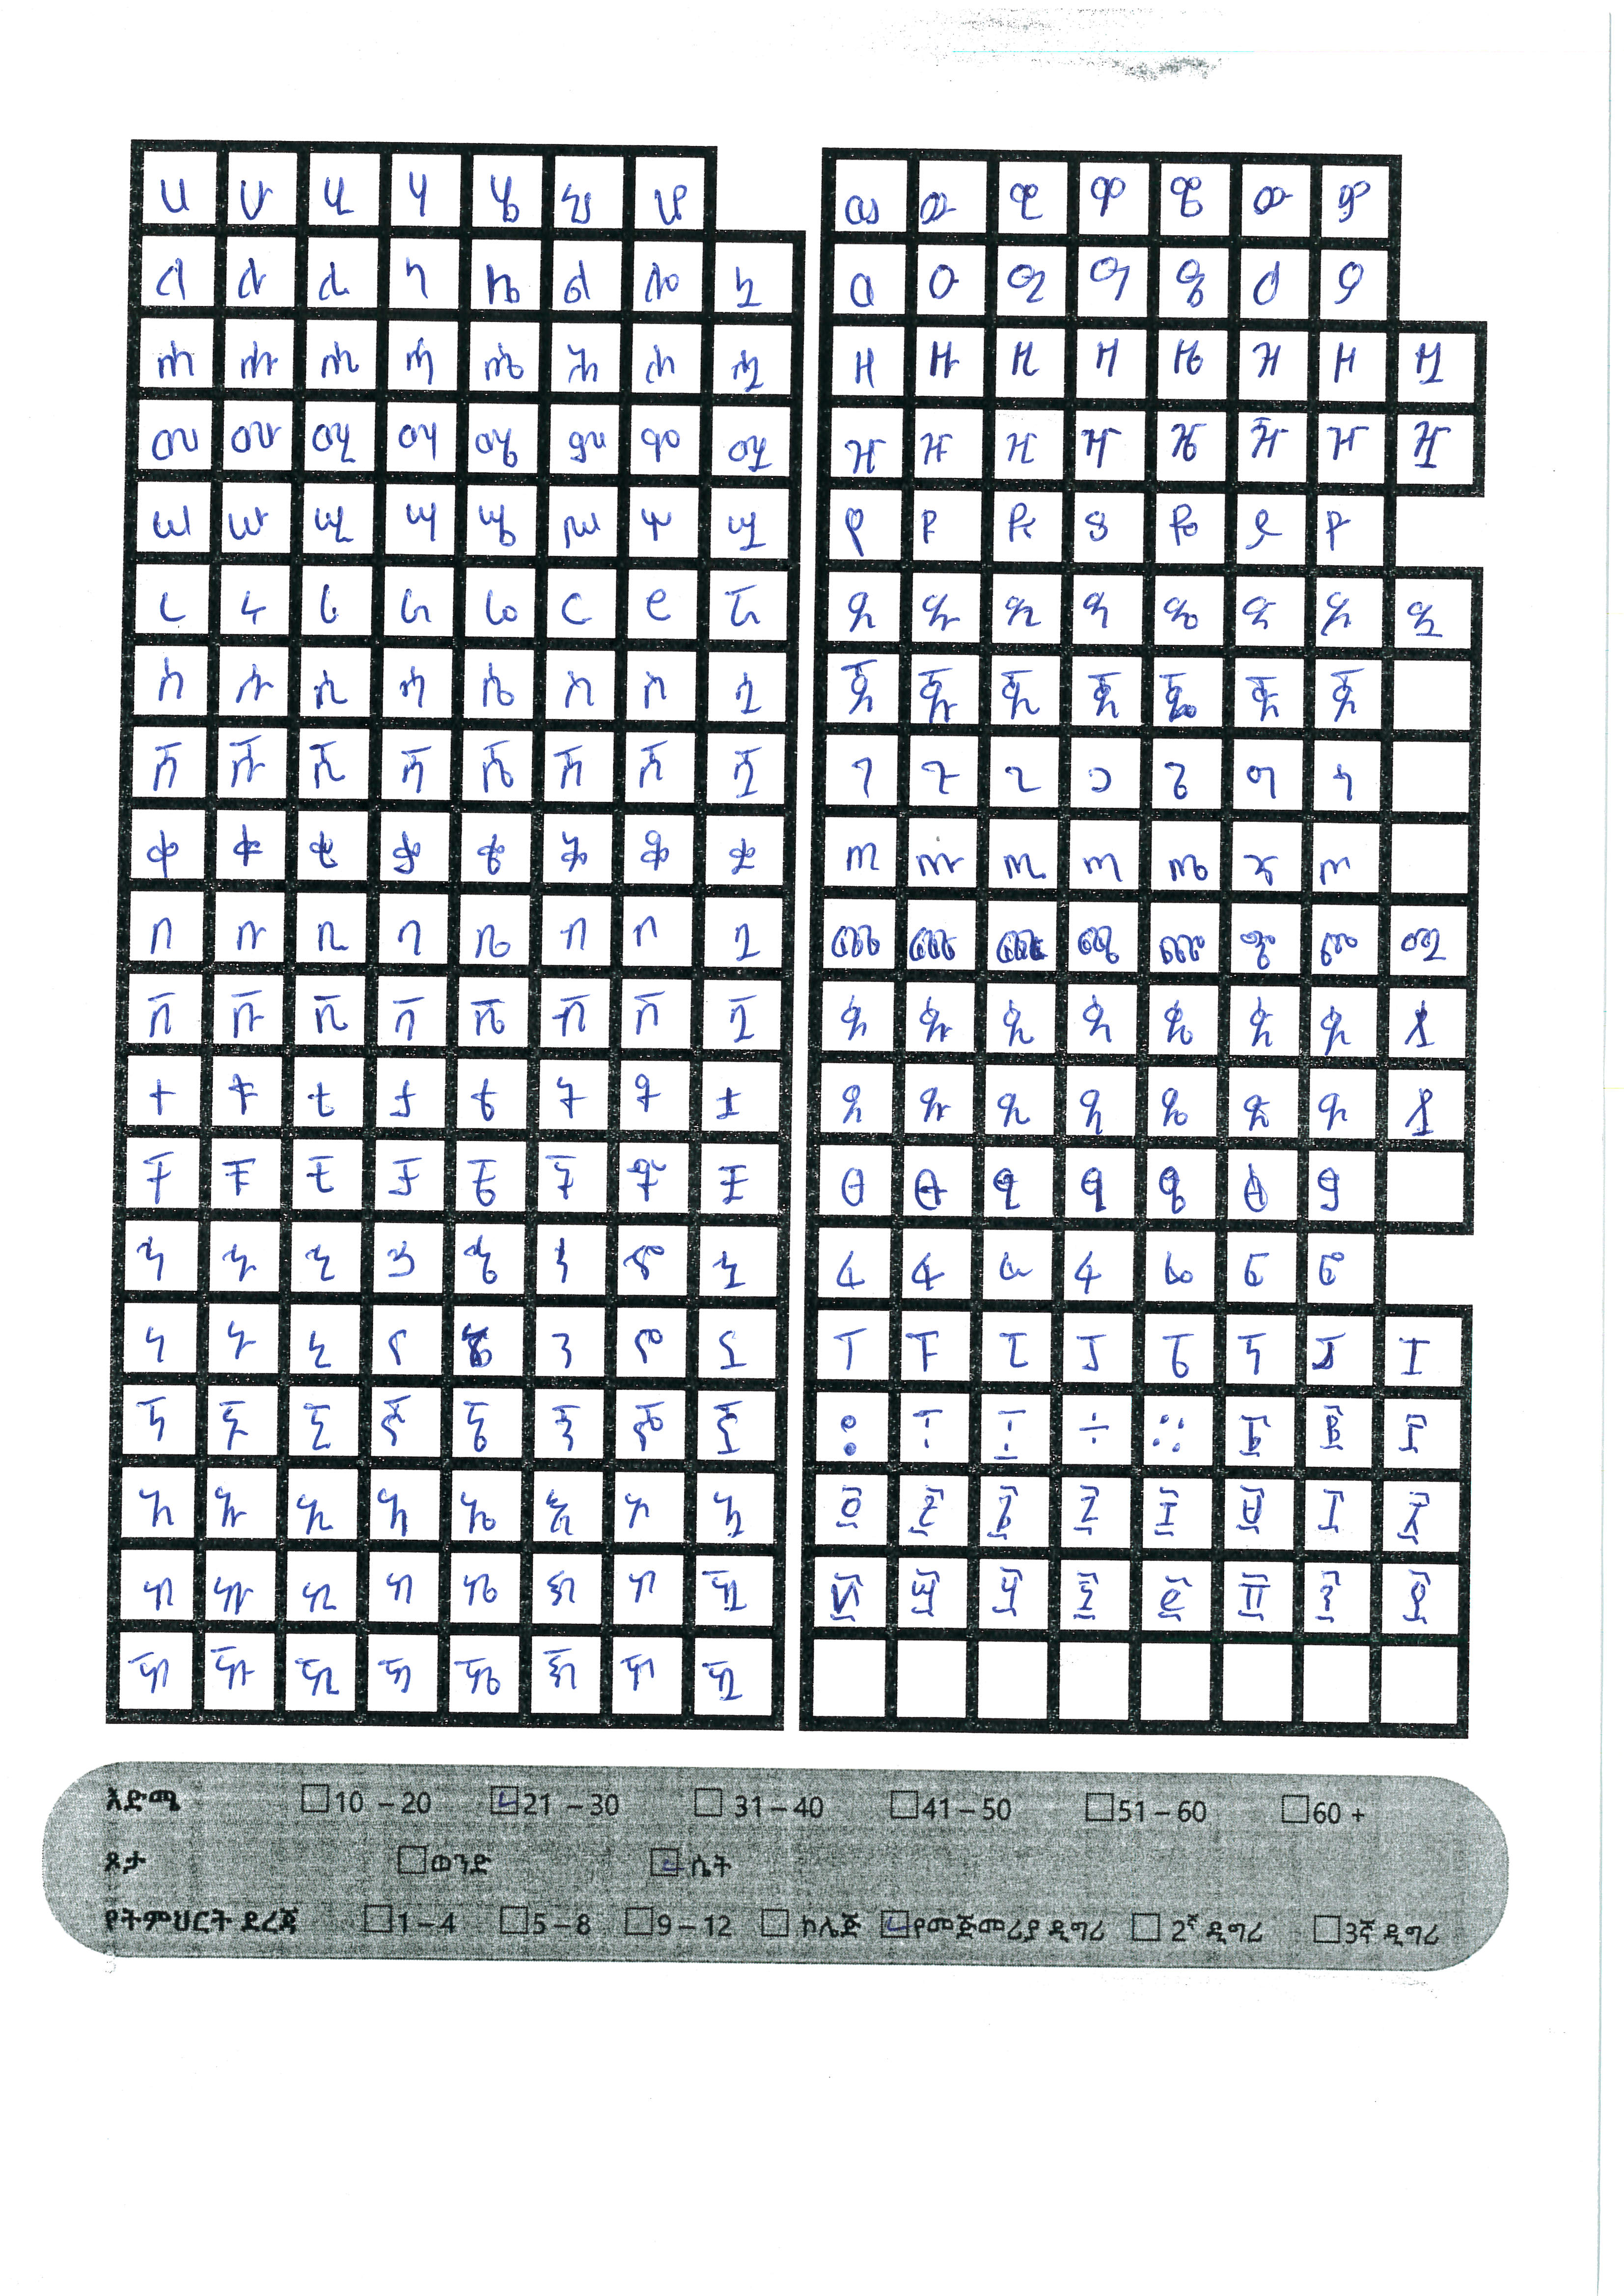 ሀ ሁ ሂ ሃ ሄ ህ ሆ
ለ ሉ ሊ ላ ሌ ል ሎ ሏ
ሐ ሑ ሒ ሓ ሔ ሕ ሖ ሗ
መ ሙ ሚ ማ ሜ ም ሞ ሟ
ሠ ሡ ሢ ሣ ሤ ሥ ሦ ሧ
ረ ሩ ሪ ራ ሬ ር ሮ ሯ
ሰ ሱ ሲ ሳ ሴ ስ ሶ ሷ
ሸ ሹ ሺ ሻ ሼ ሽ ሾ ሿ
ቀ ቁ ቂ ቃ ቄ ቅ ቆ ቋ
በ ቡ ቢ ባ ቤ ብ ቦ ቧ
ቨ ቩ ቪ ቫ ቬ ቭ ቮ ቯ
ተ ቱ ቲ ታ ቴ ት ቶ ቷ
ቸ ቹ ቺ ቻ ቼ ች ቾ ቿ
ኀ ኁ ኂ ኃ ኄ ኅ ኆ ኋ
ነ ኑ ኒ ና ኔ ን ኖ ኗ
ኘ ኙ ኚ ኛ ኜ ኝ ኞ ኟ
አ ኡ ኢ ኣ ኤ እ ኦ ኧ
ከ ኩ ኪ ካ ኬ ክ ኮ ዃ
ኸ ኹ ኺ ኻ ኼ ኽ ኾ ዃ
ወ ዉ ዊ ዋ ዌ ው ዎ
ዐ ዑ ዒ ዓ ዔ ዕ ዖ
ዘ ዙ ዚ ዛ ዜ ዝ ዞ ዟ
ዠ ዡ ዢ ዣ ዤ ዥ ዦ ዧ
የ ዩ ዪ ያ ዬ ይ ዮ
ደ ዱ ዲ ዳ ዴ ድ ዶ ዷ
ጀ ጁ ጂ ጃ ጄ ጅ ጆ
ገ ጉ ጊ ጋ ጌ ግ ጎ
ጠ ጡ ጢ ጣ ጤ ጥ ጦ
ጨ ጩ ጪ ጫ ጬ ጭ ጮ ጯ
ጰ ጱ ጲ ጳ ጴ ጵ ጶ ጷ
ጸ ጹ ጺ ጻ ጼ ጽ ጾ ጿ
ፀ ፁ ፂ ፃ ፄ ፅ ፆ
ፈ ፉ ፊ ፋ ፌ ፍ ፎ
ፐ ፑ ፒ ፓ ፔ ፕ ፖ ፗ
፡ ፣ ፤ ፥ ። ፩ ፪ ፫
፬ ፭ ፮ ፯ ፰ ፱ ፲ ፳
፴ ፵ ፶ ፷ ፸ ፹ ፺ ፻
እድሜ 10 – 20 21 – 30 31 – 40 41 – 50 51 – 60 60 +
ጾታ ወንድ ሴት
የትምህርት ደረጃ 1 – 4 5 – 8 9 – 12 ኮሌጅ የመጀመሪያ ዲግሪ 2ኛ ዲግሪ 3ኛ ዲግሪ